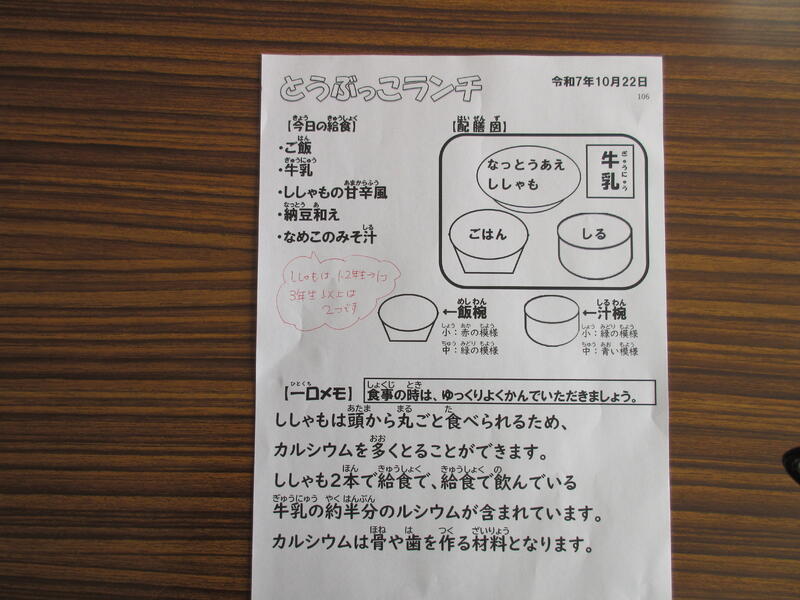 とうぶっこランチ
令和7年10月22日
106
【今日の給食】
・ご飯
・牛乳
・ししゃもの甘辛風
・納豆和え
・なめこのみそ汁
ししゃもは 1.2年生→1つ
3年生以上は
2つです
【配膳図】
なっとうあえ
ししゃも
牛乳
ごはん
しる
←飯椀
小：赤の模様
中：緑の模様
←汁椀
小：緑の模様
中：青い模様
【一口メモ】
食事の時は、ゆっくりよくかんでいただきましょう。
ししゃもは頭から丸ごと食べられるため、
カルシウムを多くとることができます。
ししゃも2本で給食で、給食で飲んでいる
牛乳の約半分のルシウムが含まれています。
カルシウムは骨や歯を作る材料となります。